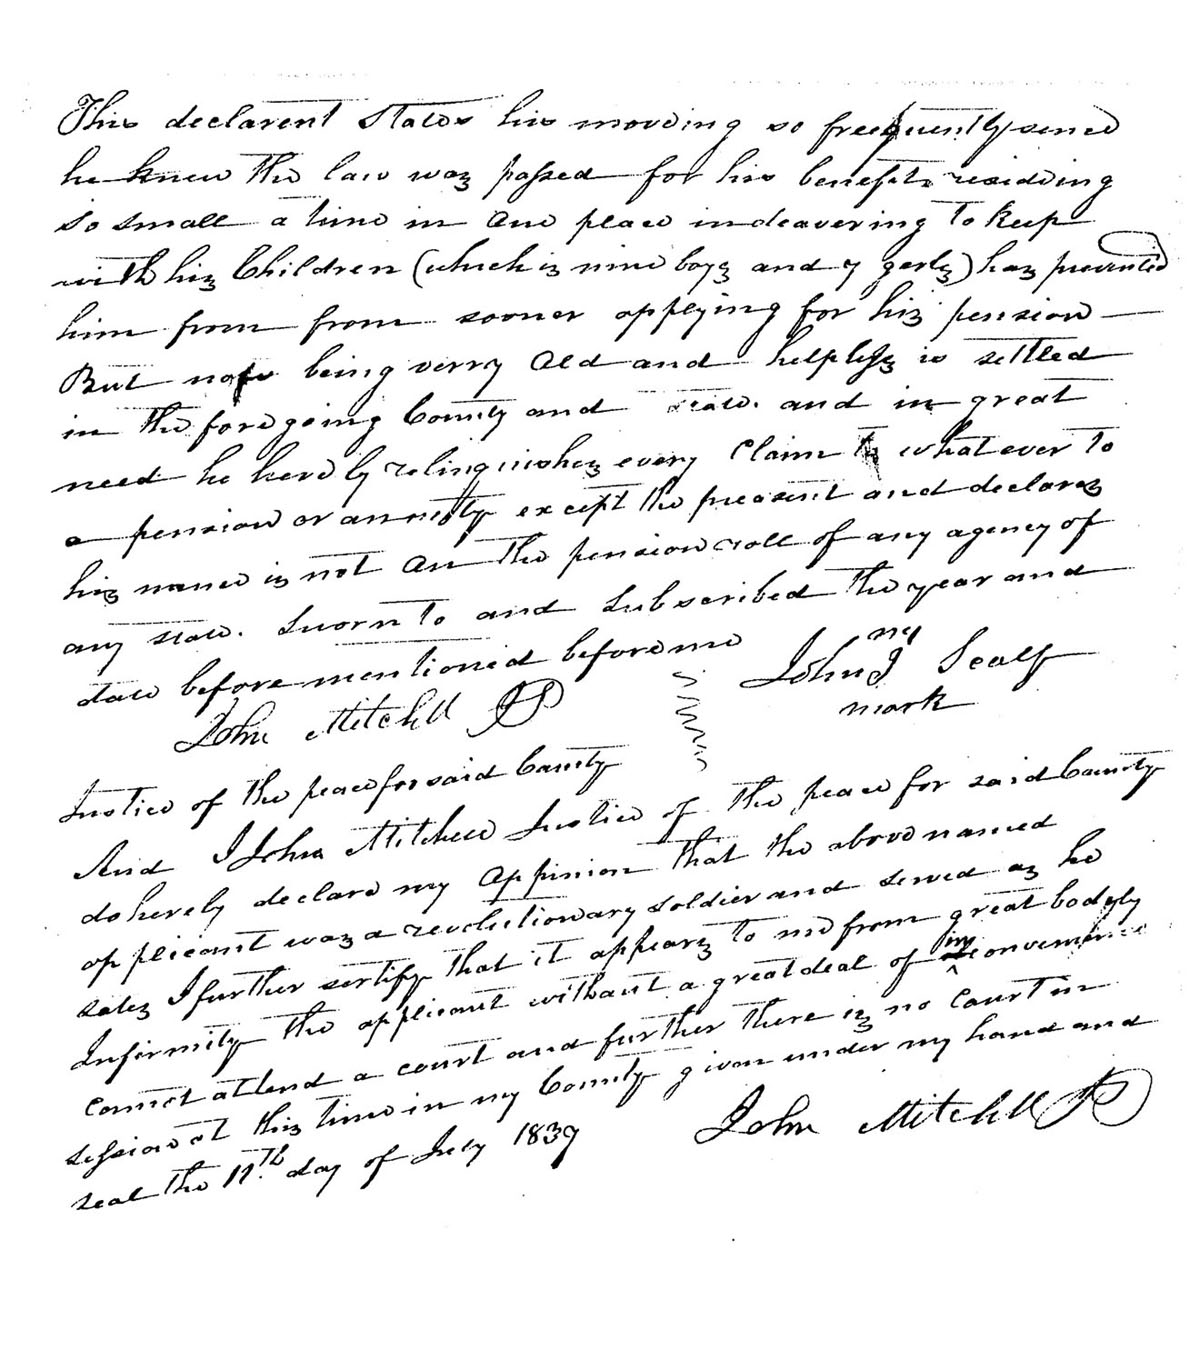 This declarent States his moveing so freequently sence
he knew the law was passed for his benefit residing
so small a time in one place indeavering to keep
with his Children (which is nine boys and 7 gerls) has prevented
him from from sooner applying for his pension
But now being verry old and helpless is settled
in the foregoing County and state. and in great
need he hereby relinquishes every Claim to whatever to
a pension or annuity except the present and declares
his name is not on the pension roll of any agency of
any state. Sworn to and Subscribed the year and
date before mentioned before me
John Mitchell JP
his
John Scalf
mark
Justice of the peace for said County
And I John Mitchell Justice of the peace for said County
do herely declare my oppinion that the above named
applicant was a revolutionary soldier and served as he
sates I further sertify that it appears to me from great bodyly
Infirmity the applicant without a great deal of inconvenience
cannot attend a court and further there is no Court in
session at this time in my County given under my hand and
seal the 11th. day of July 1839
John Mitchell JP